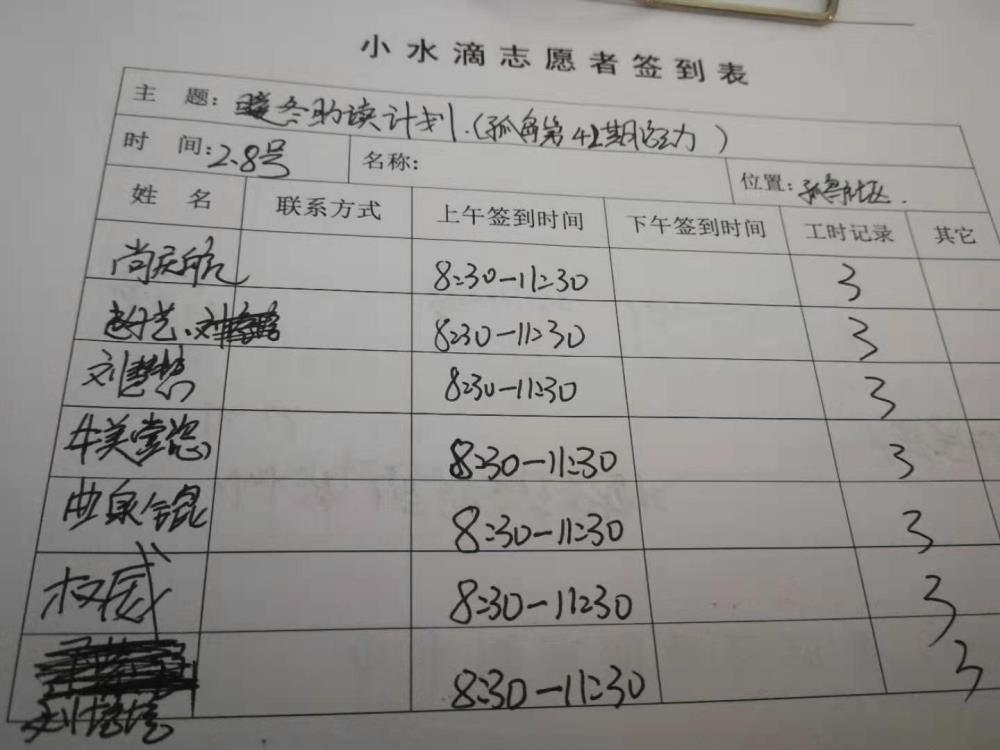 小水滴志愿者签到表
主 题: 暖冬助读计划.(孤舟第42期)
时 间: 2.8号 名称: 位置:
姓 名 联系方式 上午签到时间 下午签到时间 工时记录 其它
尚天航 8:30-11:30 3
8:30-11:30 3
刘慧慧 8:30-11:30 3
牛美莹 8:30-11:30 3
曲泉 8:30-11:30 3
权威 8:30-11:30 3
8:30-11:30 3